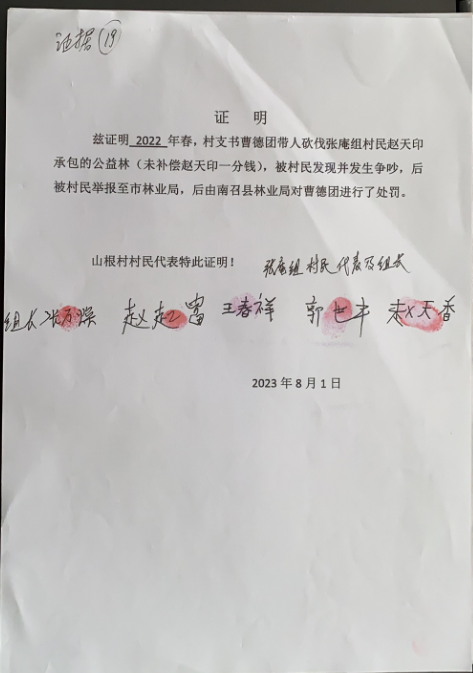 证据(19)
证 明
兹证明 2022 年春，村支书曹德团带人砍伐张庵组村民赵天印
承包的公益林（未补偿赵天印一分钱），被村民发现并发生争吵，后
被村民举报至市林业局，后由南召县林业局对曹德团进行了处罚。
山根村村民代表特此证明！ 张庵组村民代表及组长
组长 赵 富 王春祥 郭世丰 天香
2023 年 8 月 1 日